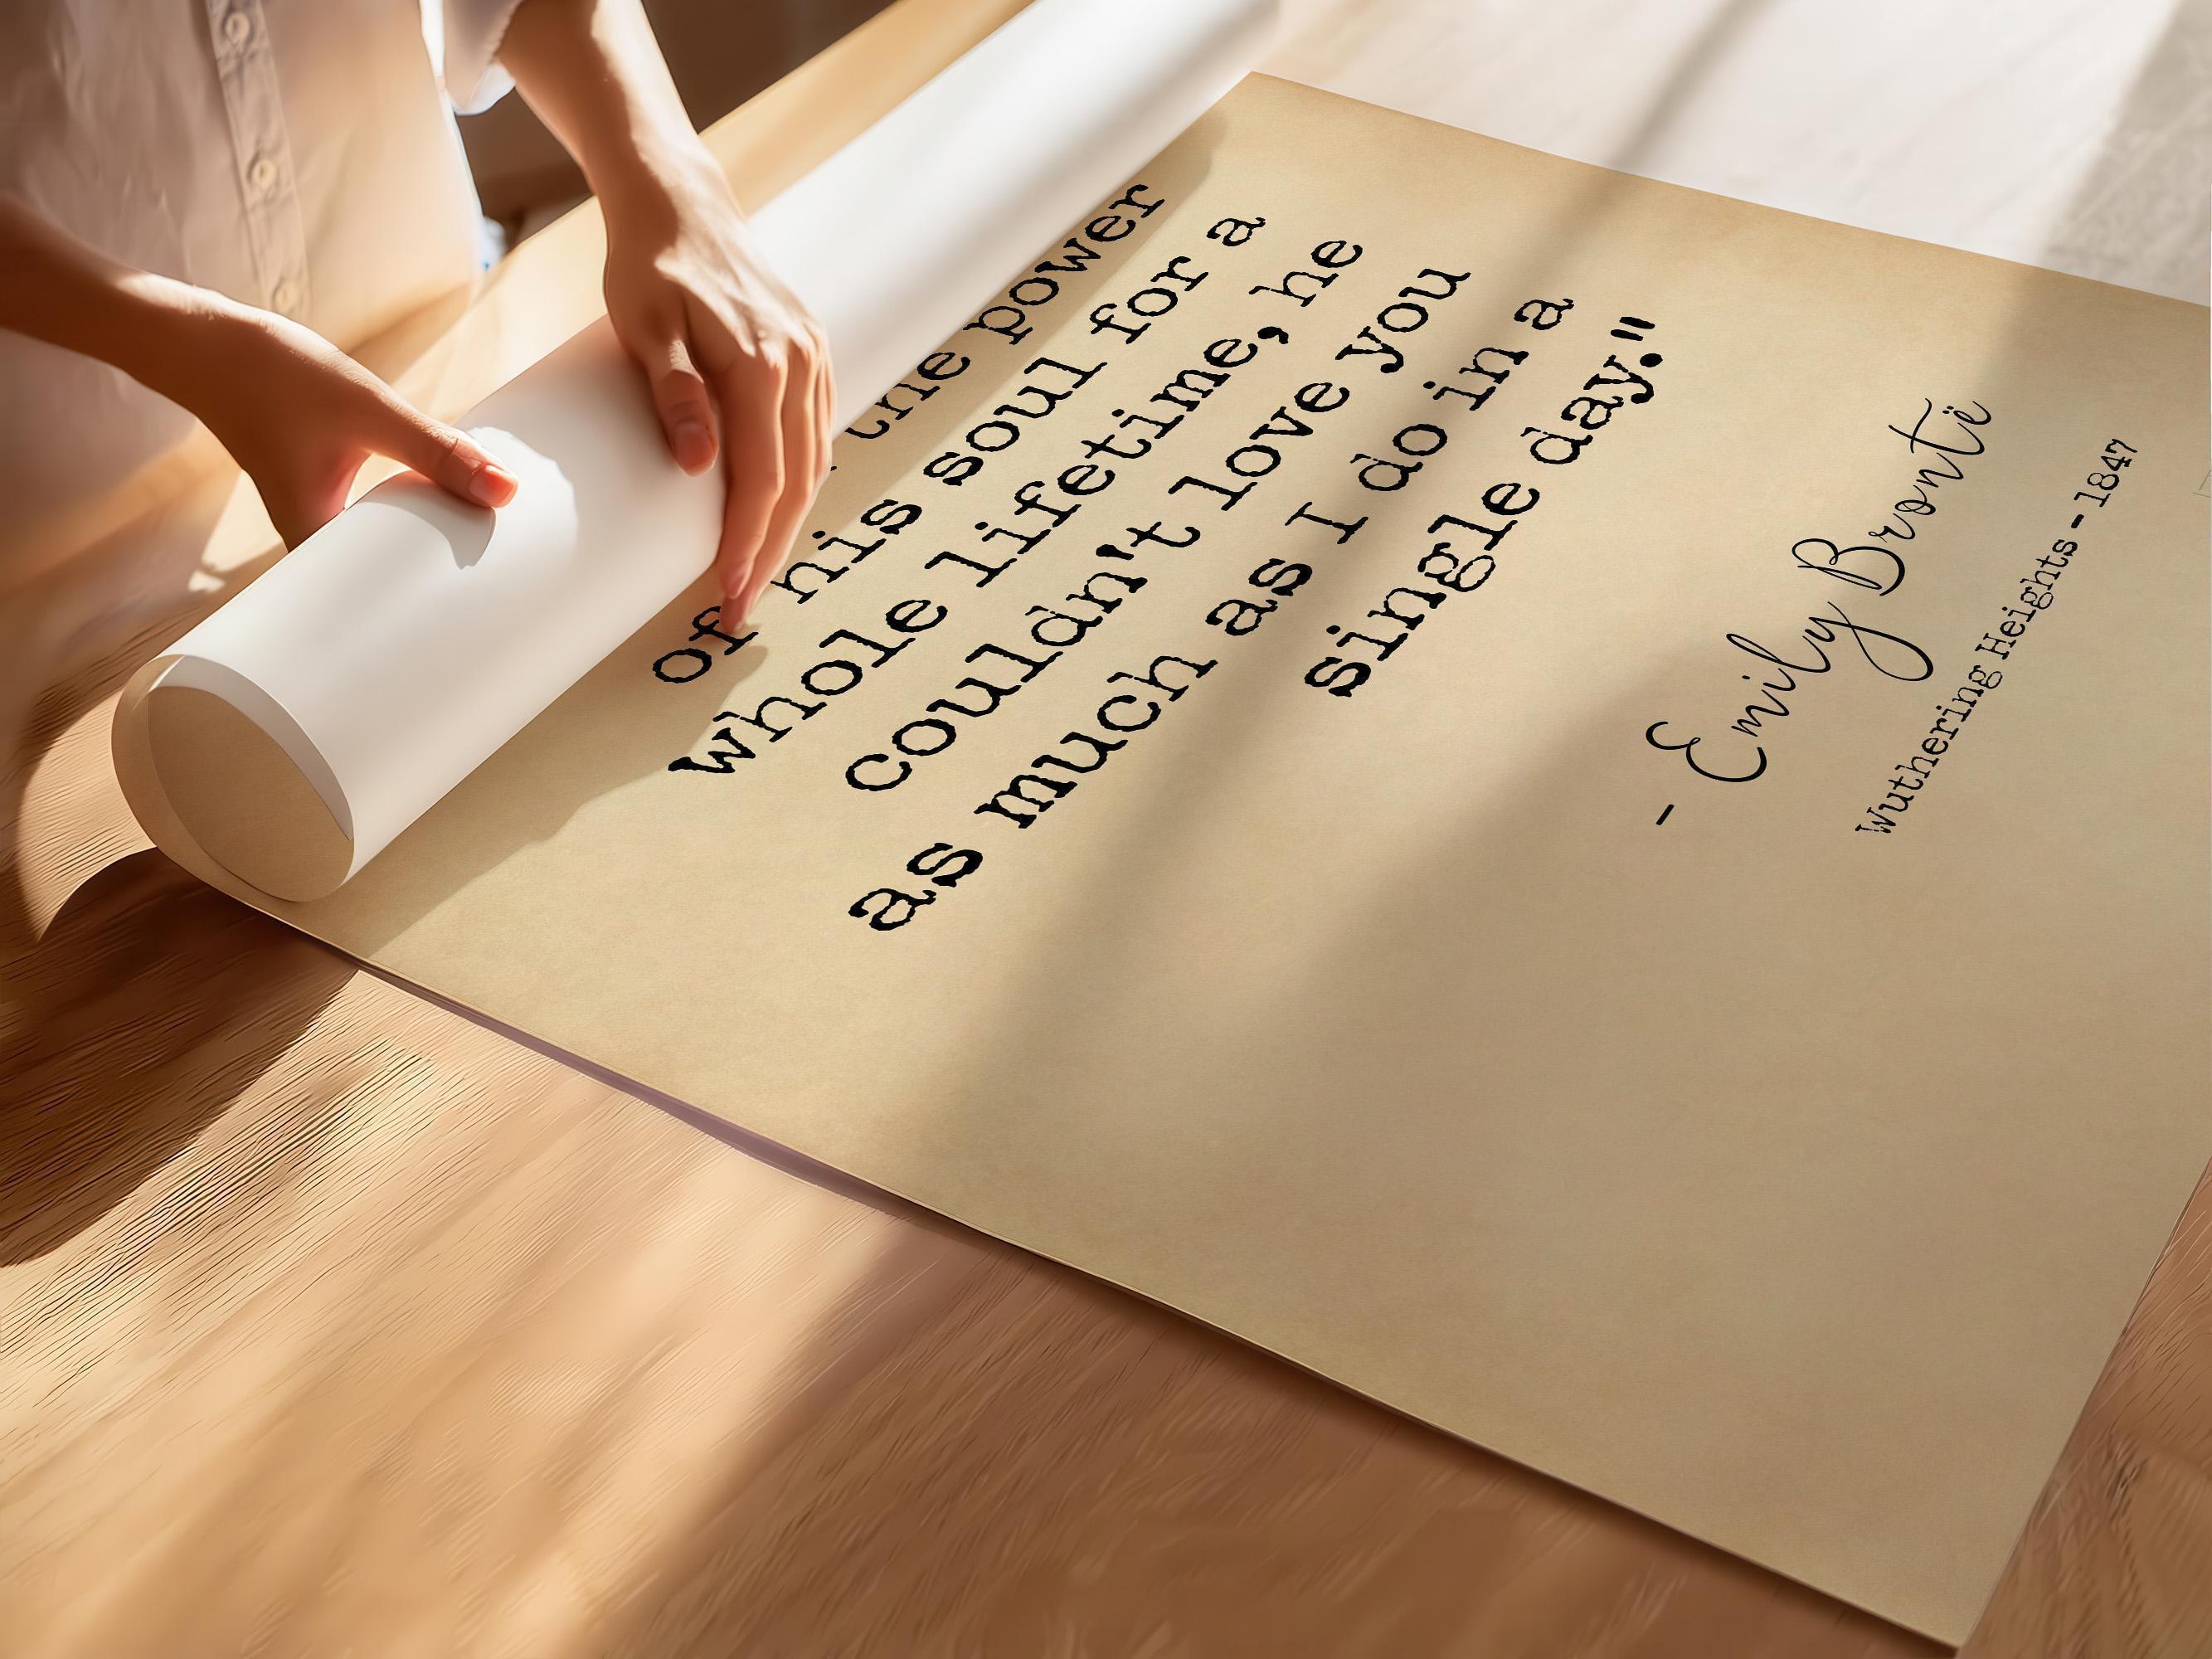 the power
of his soul for a
whole lifetime, he
couldn't love you
as much as I do in a
single day."
- Emily Brontë
Wuthering Heights - 1847